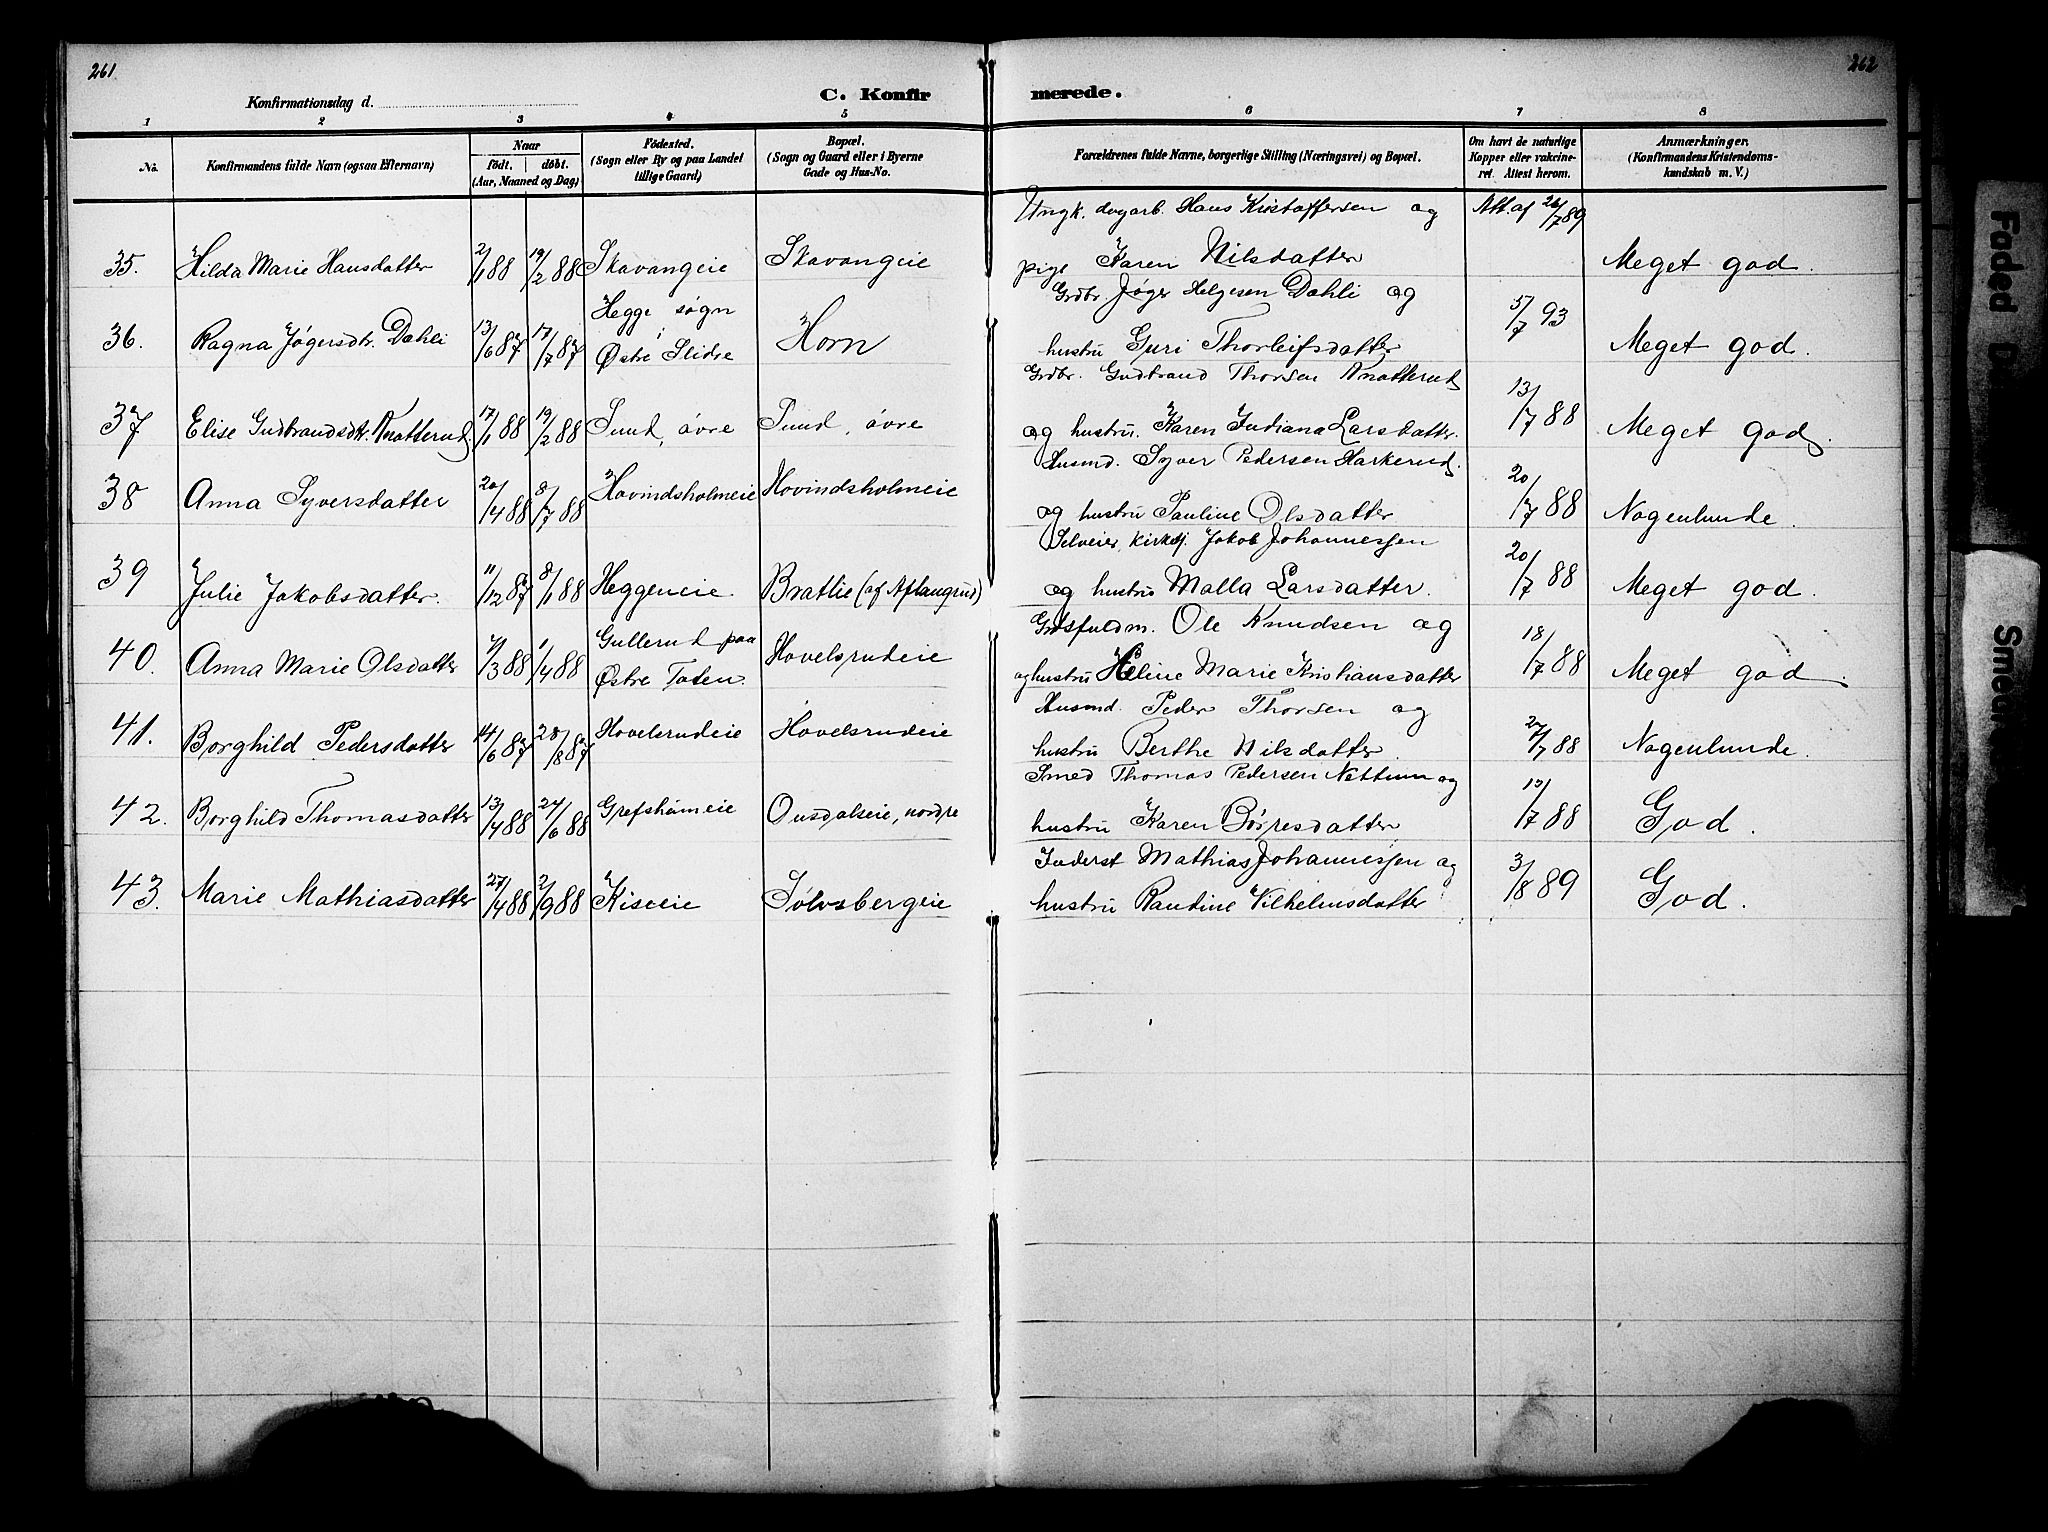 261
262
Konfirmationsdag d.
C. Konfirmerede.
1 2 3 4 5 6 7 8
No. Konfirmandens fulde Navn (ogsaa Efternavn) Naar født. døbt. (Aar, Maaned og Dag) Fødested. (Sogn eller By og paa Landet tillige Gaard) Bopæl. (Sogn og Gaard eller i Byerne Gade og Hus-No. Forældrenes fulde Navne, borgerlige Stilling (Næringsvei) og Bopæl. Om havt de naturlige Kopper eller vakcineret. Attest herom. Anmærkninger. (Konfirmandens Kristendomskundskab m. V.)
Ungk. dagarb. Hans Kristoffersen og Att. af 26/7 89
35. Hilda Marie Hansdatter 2/1 88 19/2 88 Skavangeie Skavangeie pige Karen Nilsdatter Meget god.
Hegge sogn i Grdbr. Jøger Helgesen Dahli og 5/7 93
36. Ragna Jøgersdtr. Dahli 13/6 87 17/7 87 Østre Slidre Horn hustru Guri Thorleifsdatter Meget god.
Grdbr. Gudbrand Thorsen Knatterud
37 Elise Gudbrandsdtr. Knatterud 17/1 88 19/2 88 Sund, øvre Sund, øvre og hustru. Karen Indiana Larsdatter. 13/7 88 Meget god.
Husmd. Syver Pedersen Harkerud.
38 Anna Syversdatter 20/4 88 8/7 88 Hovindsholmeie Hovindsholmeie og hustru Pauline Olsdatter 20/7 88 Nogenlunde.
Selveier, kirketj. Jakob Johannessen
39 Julie Jakobsdatter. 11/12 87 8/1 88 Heggeneie Bratlie (af Aflangrud) og hustru Malla Larsdatter. 20/7 88 Meget god.
Gullerud paa Grdsfuldm. Ole Knudsen og
40. Anna Marie Olsdatter 7/3 88 1/4 88 Østre Toten Hovelsrudeie og hustru Heline Marie Kristiansdatter 18/7 88 Meget god.
Husmd. Peder Thorsen og
41. Borghild Pedersdatter 14/6 87 28/8 87 Hovelsrudeie Hovelsrudeie hustru Berthe Nilsdatter 27/7 88 Nogenlunde.
Smed Thomas Pedersen Nettum og
42. Borghild Thomasdatter 13/4 88 24/6 88 Grefsheimeie Ousdalseie, nordre hustru Karen Børresdatter 13/7 88 God.
Inderst Mathias Johannessen og
43. Marie Mathiasdatter 27/4 88 2/9 88 Kiseeie Sølvsbergeie hustru Randine Vilhelmsdatter 3/8 89 God.
Faded